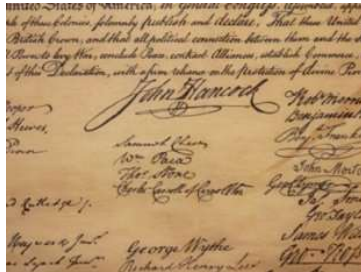 United States of America, in General Congress
of these Colonies, solemnly publish and declare, That these United
British Crown, and that all political connection between them and the
Power to levy War, conclude Peace, contract Alliances, establish Commerce
of this Declaration, with a firm reliance on the protection of divine
John Hancock
Rob Morris
Benjamin
Hewes,
Samuel Chase
Wm Paca
Thos Stone
Charles Carroll of Carrollton
John Mort
Ja
Geo. Tay
James Wil
George Wythe
Richard Henry Lee
Geo. Ross